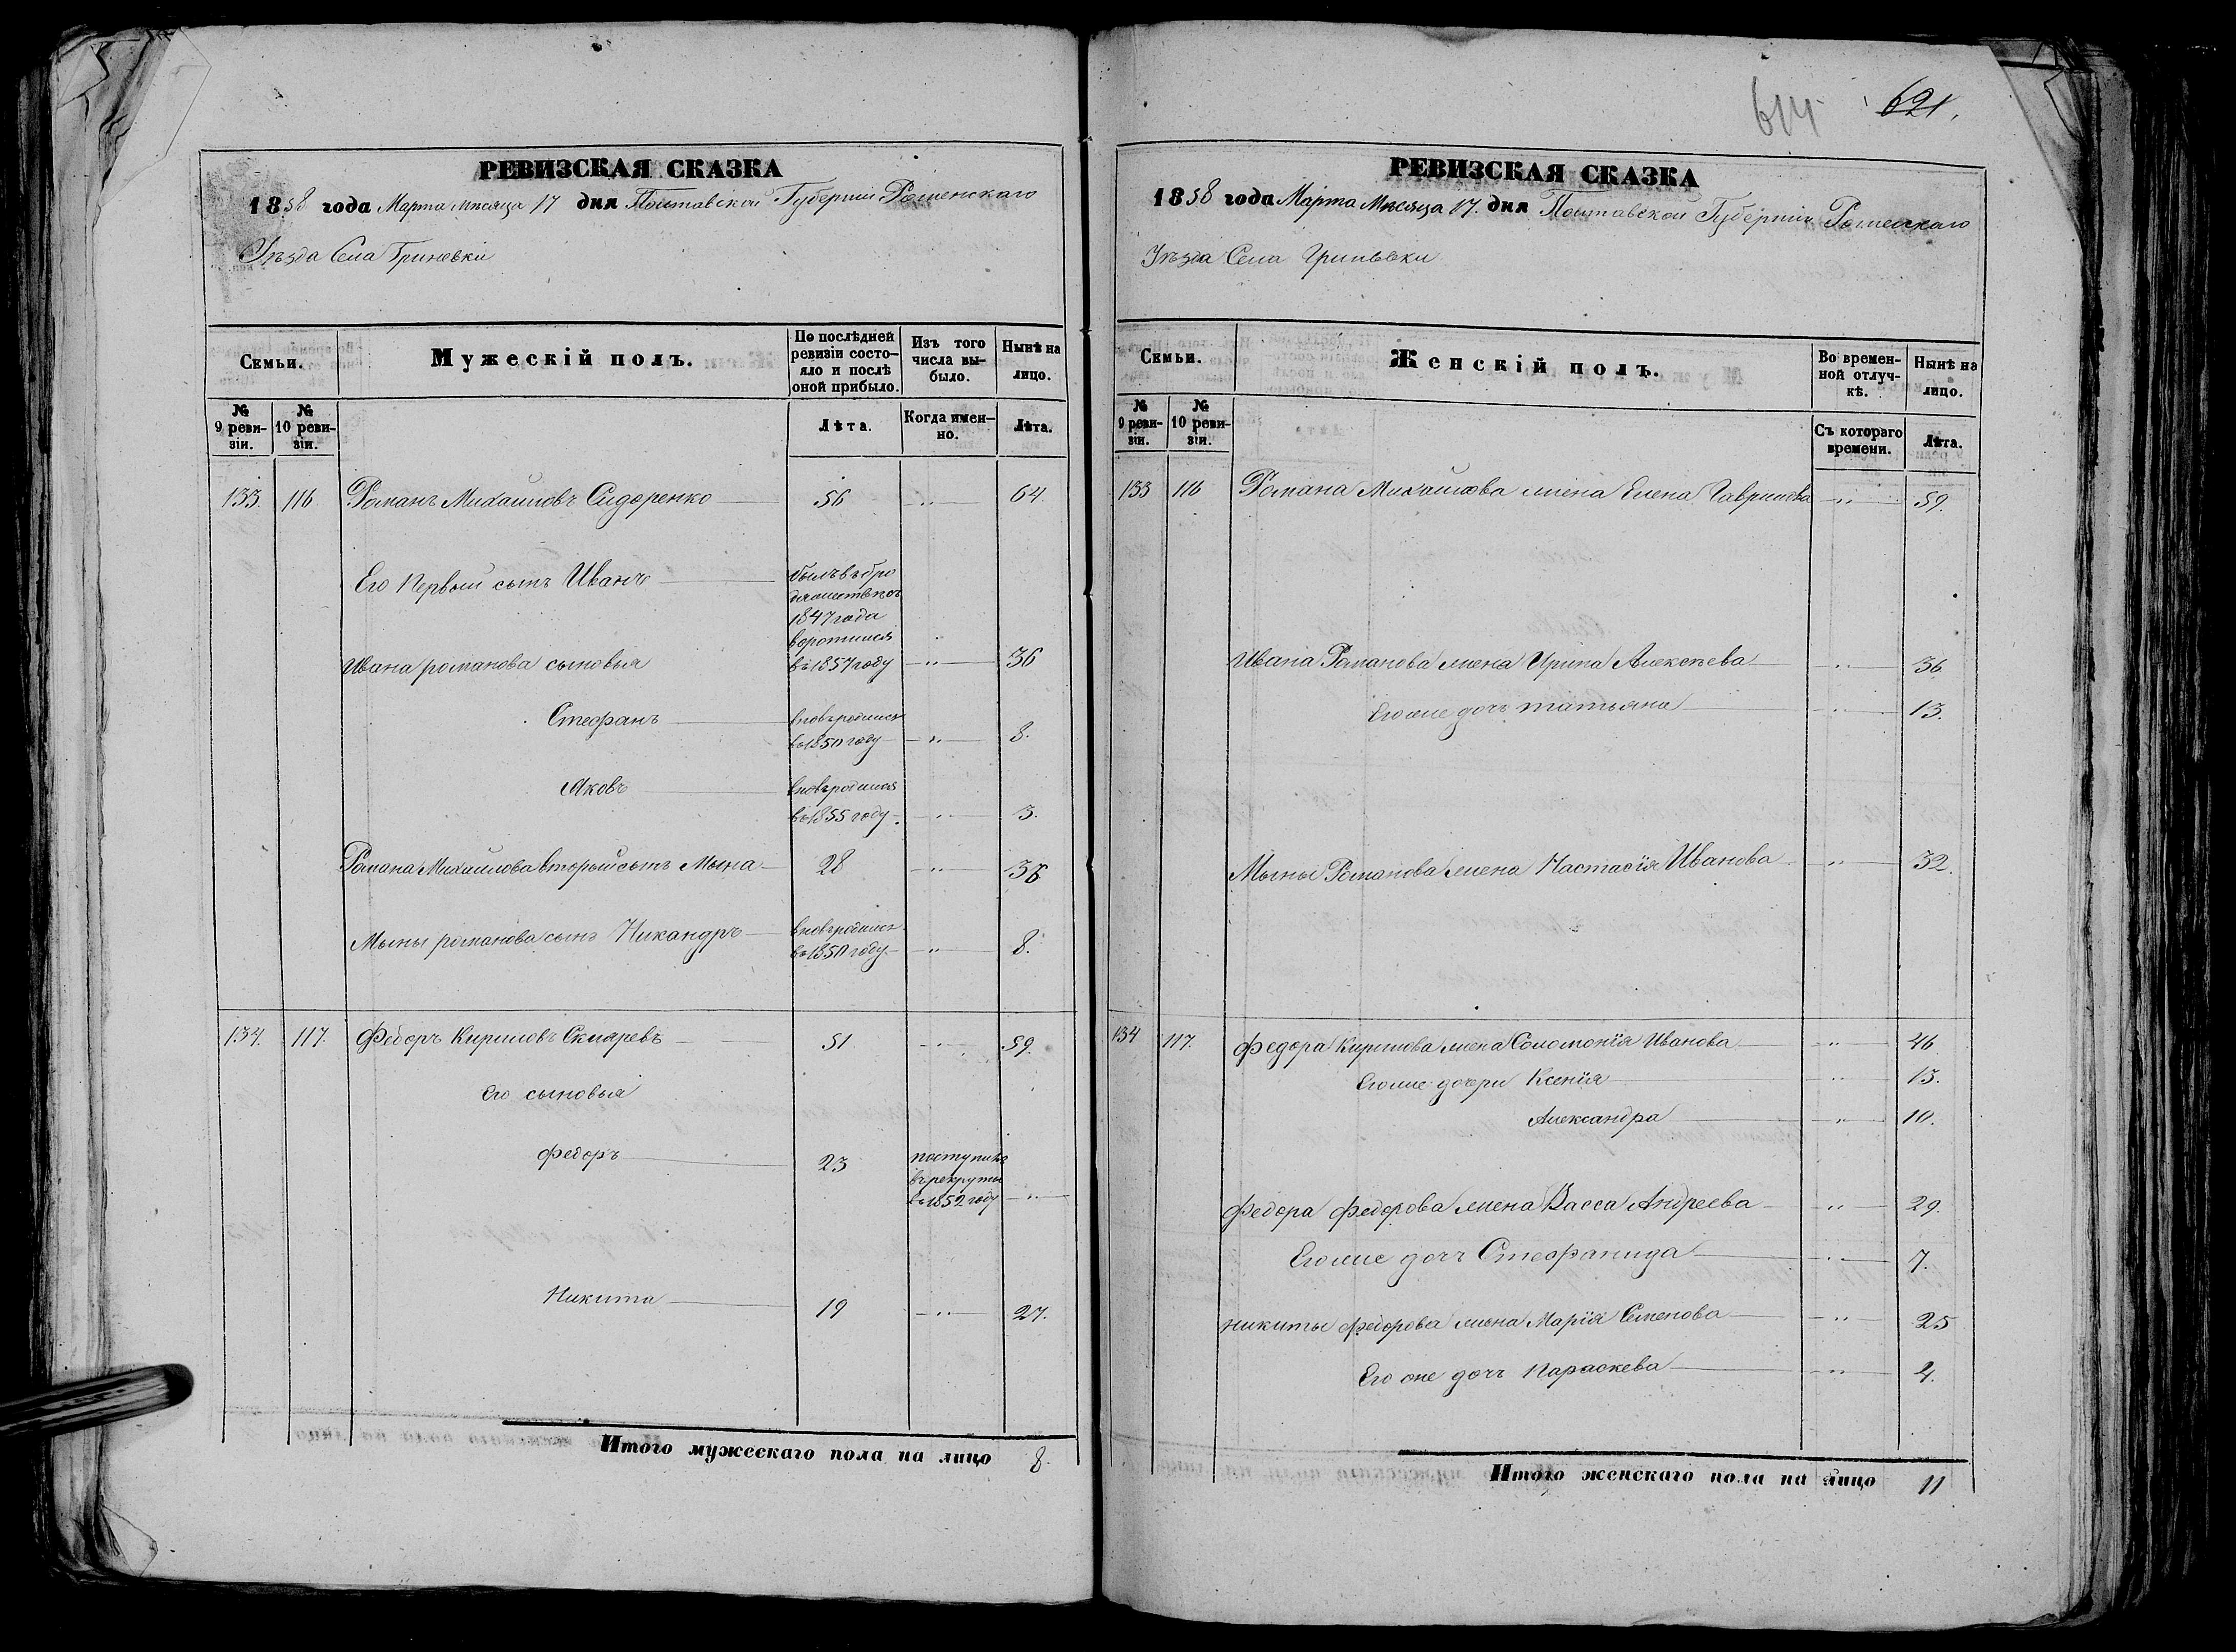 РЕВИЗСКАЯ СКАЗКА
1858 года Марта Месяца 17 дня Полтавской Губернии Роменскаго
Уезда Села Гриневки
Семьи.
Мужескій полъ.
По послѣдней ревизіи состо-
яло и послѣ
оной прибыло.
Изъ того
числа вы-
было.
Нынѣ на
лицо.
№
9 реви-
зіи.
№
10 реви-
зіи.
Лѣта.
Когда имен-
но.
Лѣта.
133. 116 Романъ Михаиловъ Сидоренко 56 " 64
Его Первый сынъ Иванъ былъ в бро
дяжестве съ
1847 года
воротился
Ивана романова сыновья въ 1857 году " 36
Стефанъ вновьродился
въ 1850 году " 8.
Яковъ вновьродился
въ 1855 году " 3.
Романа Михаилова вторый сынъ Мына 28 " 36
Мыны романова сынъ Никандръ вновьродился
въ 1850 году " 8.
134. 117. Федоръ Кириловъ Скляревъ 51 " 59.
Его сыновья
Федоръ 23 поступилъ
въ рекруты
въ 1852 году "
Никита 19 " 27.
Итого мужескаго пола на лицо 8.
614 621.
РЕВИЗСКАЯ СКАЗКА
1858 года Марта Месяца 17. дня Полтавской Губерніи Роменскаго
Уезда Села Гриневки
Семьи.
Женскій полъ.
Во времен-
ной отлуч-
кѣ.
Нынѣ на
лицо.
№
9 реви-
зіи.
№
10 реви-
зіи.
Съ котораго
времени.
Лѣта.
133 116 Романа Михаилова жена Елена Гаврилова " 59.
Ивана Романова жена Ирина Алексеева " 36
Егоже дочъ татьяна " 13.
Мыны Романова жена Настасія Иванова " 32.
134 117. Федора Кирилова жена Соломонія Иванова " 46
Егоже дочери Ксенія " 13.
Александра " 10.
Федора Федорова жена Васса Андреева " 29.
Егоже дочъ Стефанида " 7.
Никиты Федорова жена Марія Семенова " 25
Его же дочъ Параскева " 4.
Итого женскаго пола на лицо 11